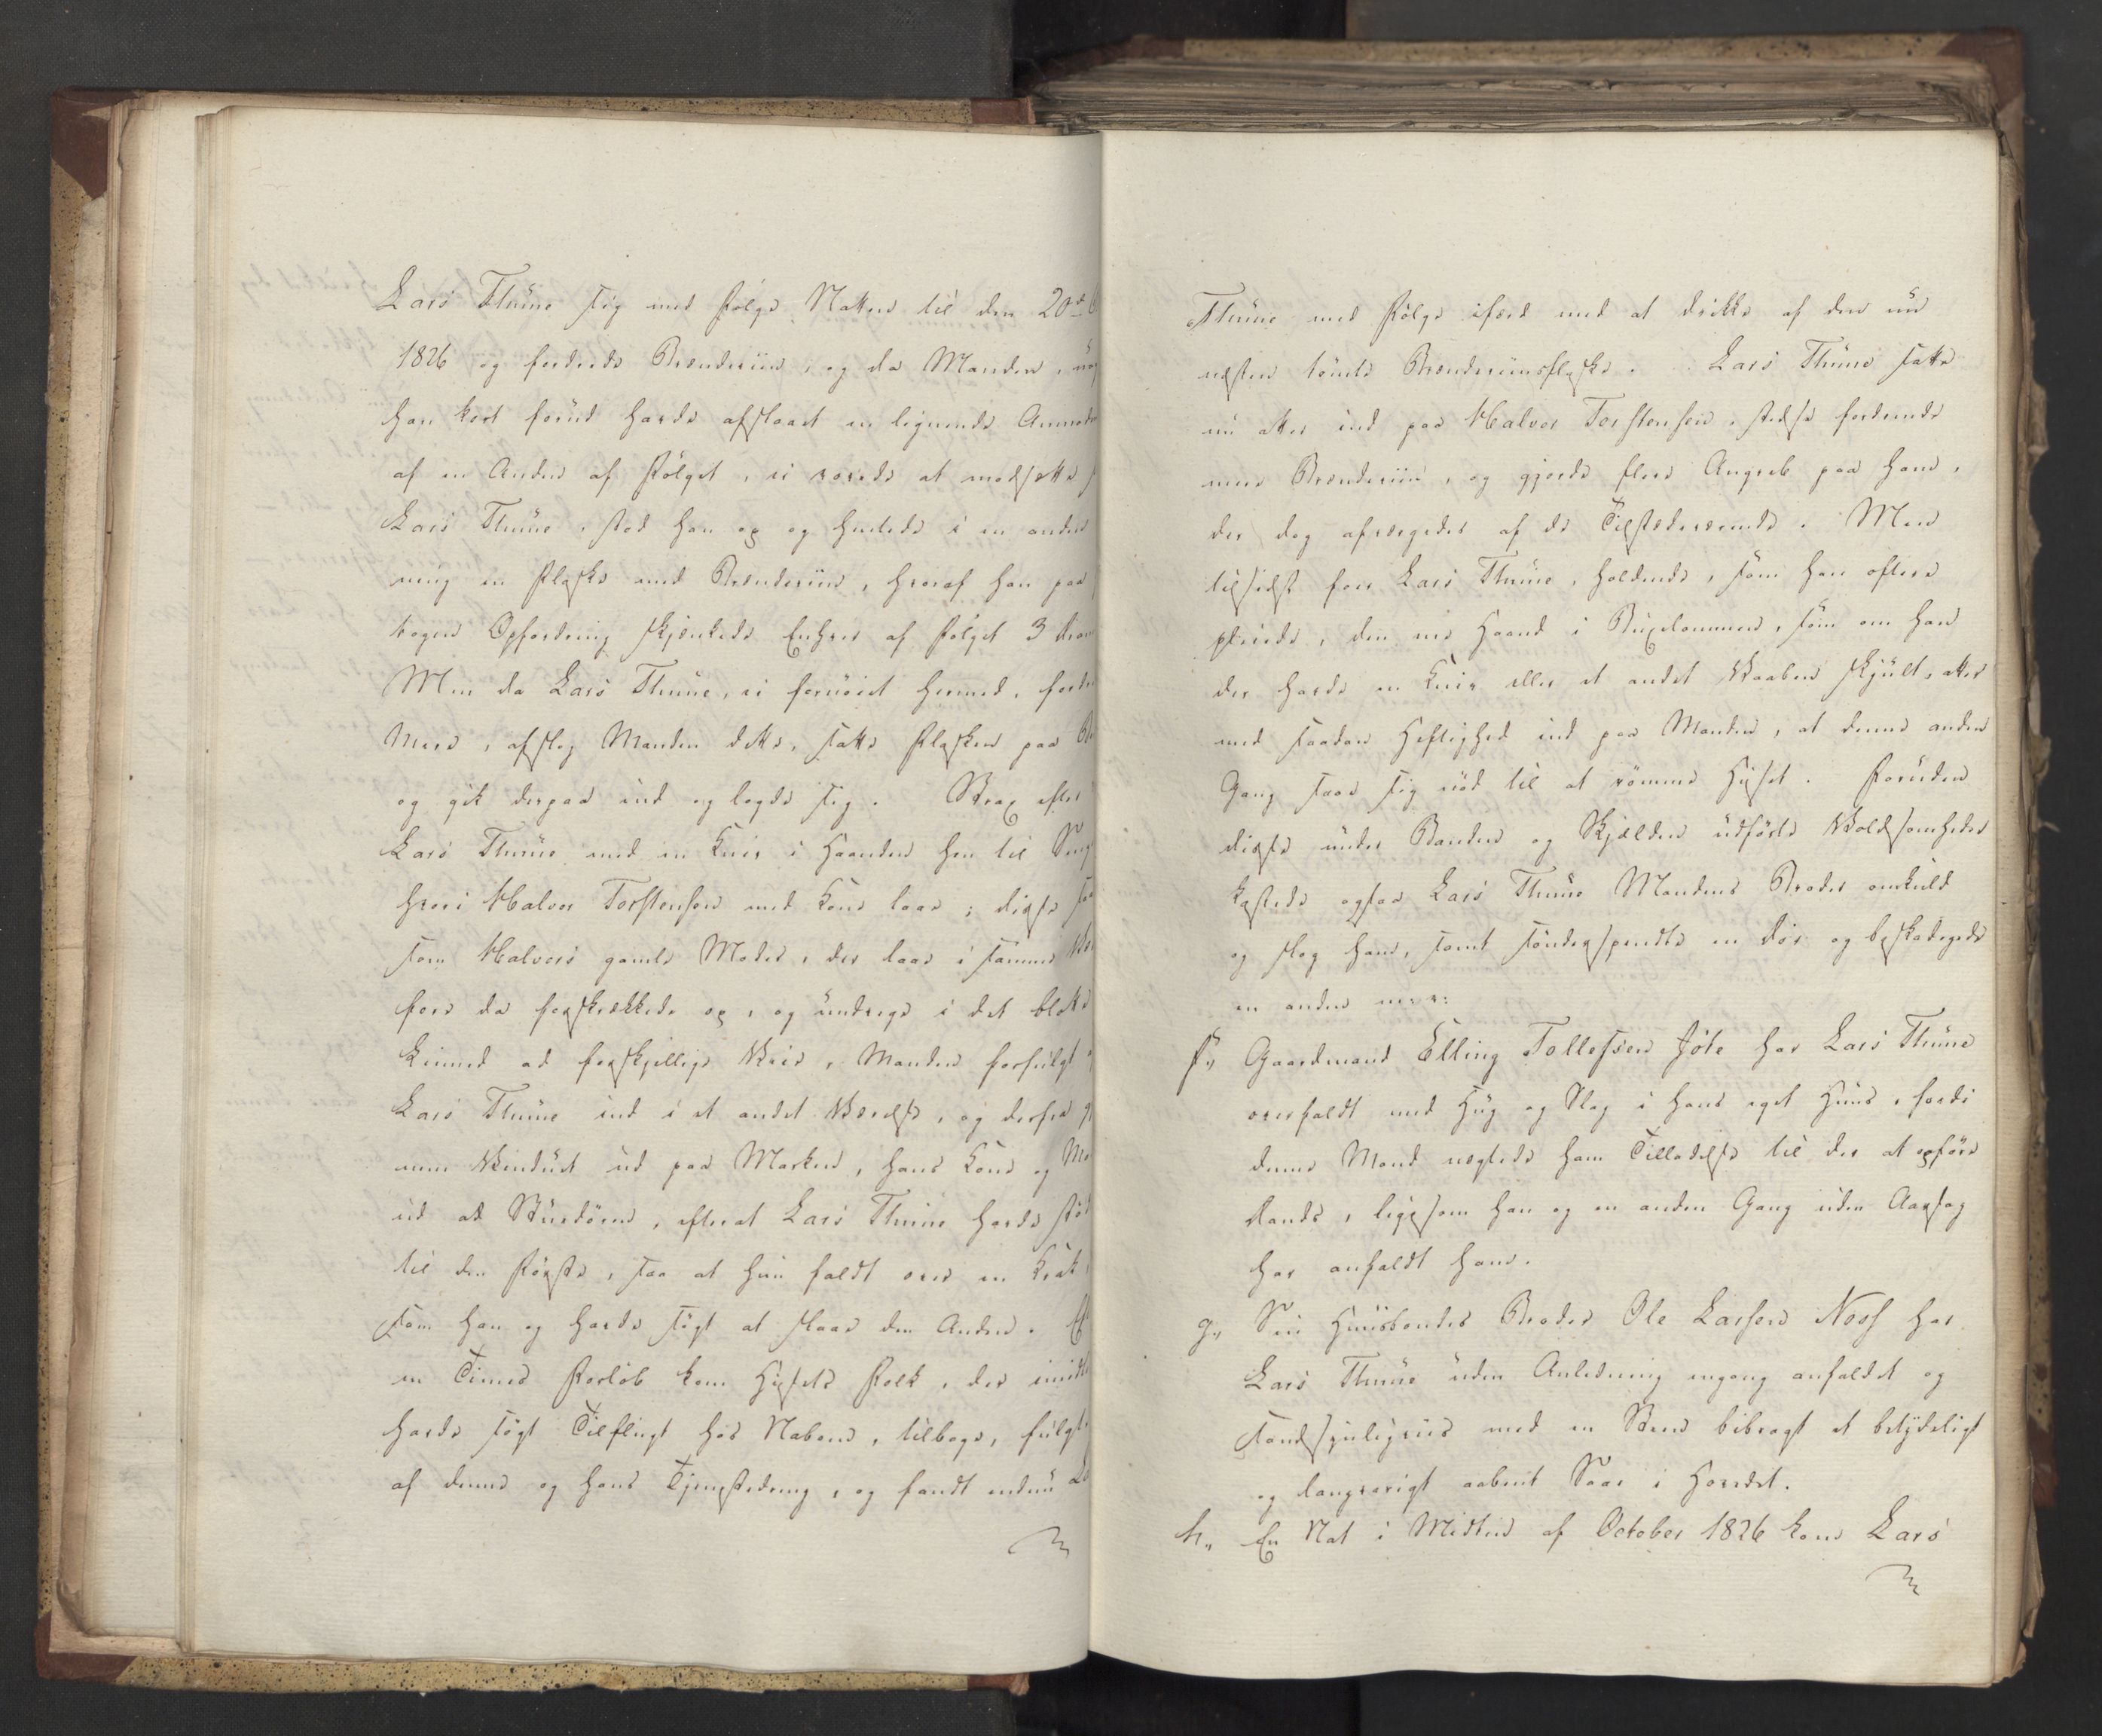 Lars Thune sig med Følge Natten til den 20de
1826 og fordrede Brændeviin, og da Manden,
han kort forud havde afslaaet en lignende
af en Anden af Følget, ei vovede at modsætte
Lars Thune, stod han op og hentede i en anden
en Flaske med Brændeviin, hvoraf han paa
Opfordring skjænkede Enhver af Følget 3
Men da Lars Thune, ei fornøiet hermed,
Mere, afslog Manden dette, satte Flasken paa
og gik derpaa ind og lagde sig. Strax efter
Lars Thune med en Kniv i Haanden hen til
hvori Halvor Torstensen med Kone laae; disse
som Halvors gamle Moder, der laae i samme
fore da forskrækkede op, og undvege i det
ad forskjellige Veie, Manden forfulgt
Lars Thune ind i et andet Værelse, og derfra
Vinduet ud paa Marken, hans Kone og
ud ad Stuedøren, efterat Lars Thune havde
til den Første, saa at hun faldt over en Krak,
som han og havde søgt at slaae den Anden.
en Times Forløb kom Husets Folk, der
havde søgt Tilflugt hos Naboen, tilbage, fulgt
af denne og hans Tjenestedreng, og fandt endnu
Thune med Følge ifærd med at drikke af den nu
næsten tømte Brændeviinsflaske. Lars Thune satte
nu atter ind paa Halvor Torstensen, stedse fordrende
mere Brændeviin, og gjorde flere Angreb paa ham,
der dog afværgedes af de Tilstedeværende. Men
tilsidst foer Lars Thune, holdende, som han oftere
pleiede, den ene Haand i Buxelommen, som om han
der havde en Kniv eller et andet Vaaben skjult, atter
med saadan Heftighed ind paa Manden, at denne anden
Gang saae sig nød til at rømme Huset. Foruden
disse under Banden og Skjælden udførte Voldsomheder
kastede ogsaa Lars Thune Mandens Broder omkuld
og slog ham, samt sønderspendte en Dør og beskadigede
en anden m: v:
f,, Gaardmand Elling Tollefsen Jøte har Lars Thune
overfaldt med Hug og Slag i hans eget Huus, fordi
denne Mand nægtede ham Tilladelse til der at opføre
Dands, ligesom han og en anden Gang uden Aarsag
har anfaldt ham.
g,, Sin Huusbondes Broder Ole Larsen Noss har
Lars Thune uden Anledning engang anfaldet og
sandsynligviis med en Steen bibragt et betydeligt
og langvarigt aabent Saar i Hovedet.
h,, En Nat i Midten af October 1826 kom Lars